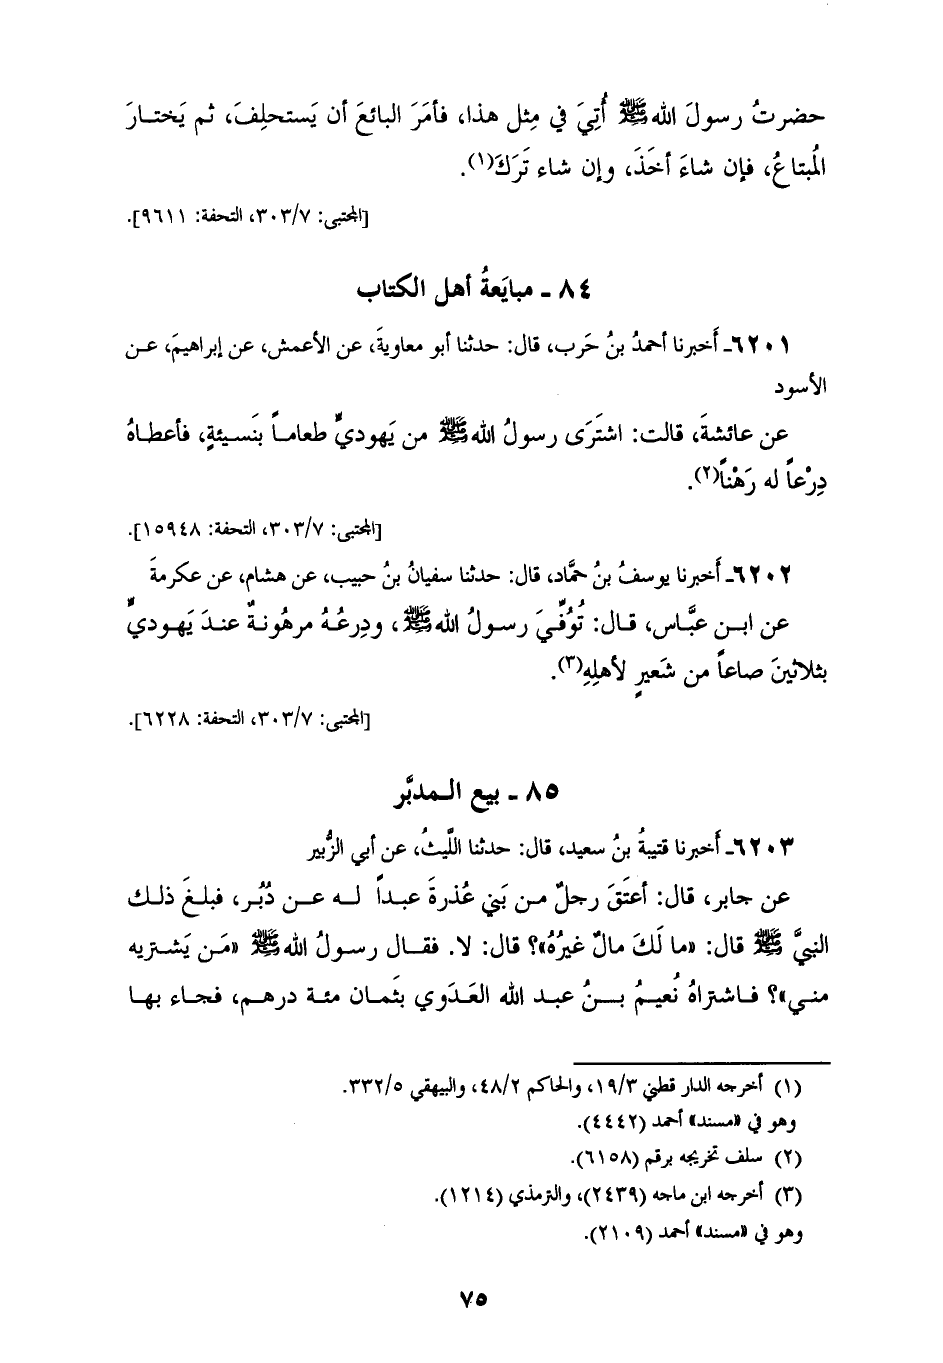 حضرتُ رسولَ الله ﷺ أُتِيَ في مِثل هذا، فأمَرَ البائعَ أن يَستحلِفَ، ثم يَختـارَ
المُبتاعُ، فإن شاءَ أخَذَ، وإن شاء تَرَكَ(١).
[المجتبى: ٣٠٣/٧، التحفة: ٩٦١١].
٨٤ ـ مبايَعةُ أهل الكتاب
٦٢٠١ـ أَخبرنا أحمدُ بنُ حَرب، قال: حدثنا أبو معاويةَ، عن الأعمش، عن إبراهيمَ، عـن
الأسود
عن عائشةَ، قالت: اشتَرَى رسولُ الله ﷺ من يَهوديٍّ طعامـاً بنَسـيئةٍ، فأعطـاهُ
دِرْعاً له رَهْناً(٢).
[المجتبى: ٣٠٣/٧، التحفة: ١٥٩٤٨].
٦٢٠٢ـ أَخبرنا يوسفُ بنُ حمَّاد، قال: حدثنا سفيانُ بنُ حبيب، عن هشام، عن عكرمةَ
عن ابـن عبَّاس، قـال: تُوُفِّيَ رسـولُ الله ﷺ، ودِرعُـهُ مرهُونـةٌ عنـدَ يَهـوديٍّ
بثلاثينَ صاعاً من شَعيرٍ لأهلِهِ(٣).
[المجتبى: ٣٠٣/٧، التحفة: ٦٢٢٨].
٨٥ ـ بيع الـمدبَّر
٦٢٠٣ـ أَخبرنا قتيبةُ بنُ سعيد، قال: حدثنا اللَّيثُ، عن أبي الزُّبير
عن جابر، قال: أعتَقَ رجلٌ مـن بَني عُذرةَ عبـداً لـه عـن دُبُـر، فبلـغَ ذلـك
النبيَّ ﷺ قال: «ما لَكَ مالٌ غيرُهُ»؟ قال: لا. فقـال رسـولُ الله ﷺ «مَـن يَشـتريه
منـي»؟ فـاشتراهُ نُعيـمُ بـنُ عبـد الله العَـدَوي بثَمـان مئـة درهـم، فجـاء بهـا
(١) أخرجه الدار قطني ١٩/٣، والحاكم ٤٨/٢، والبيهقي ٣٣٢/٥.
وهو في «مسند» أحمد (٤٤٤٢).
(٢) سلف تخريجه برقم (٦١٥٨).
(٣) أخرجه ابن ماجه (٢٤٣٩)، والترمذي (١٢١٤).
وهو في «مسند» أحمد (٢١٠٩).
٧٥